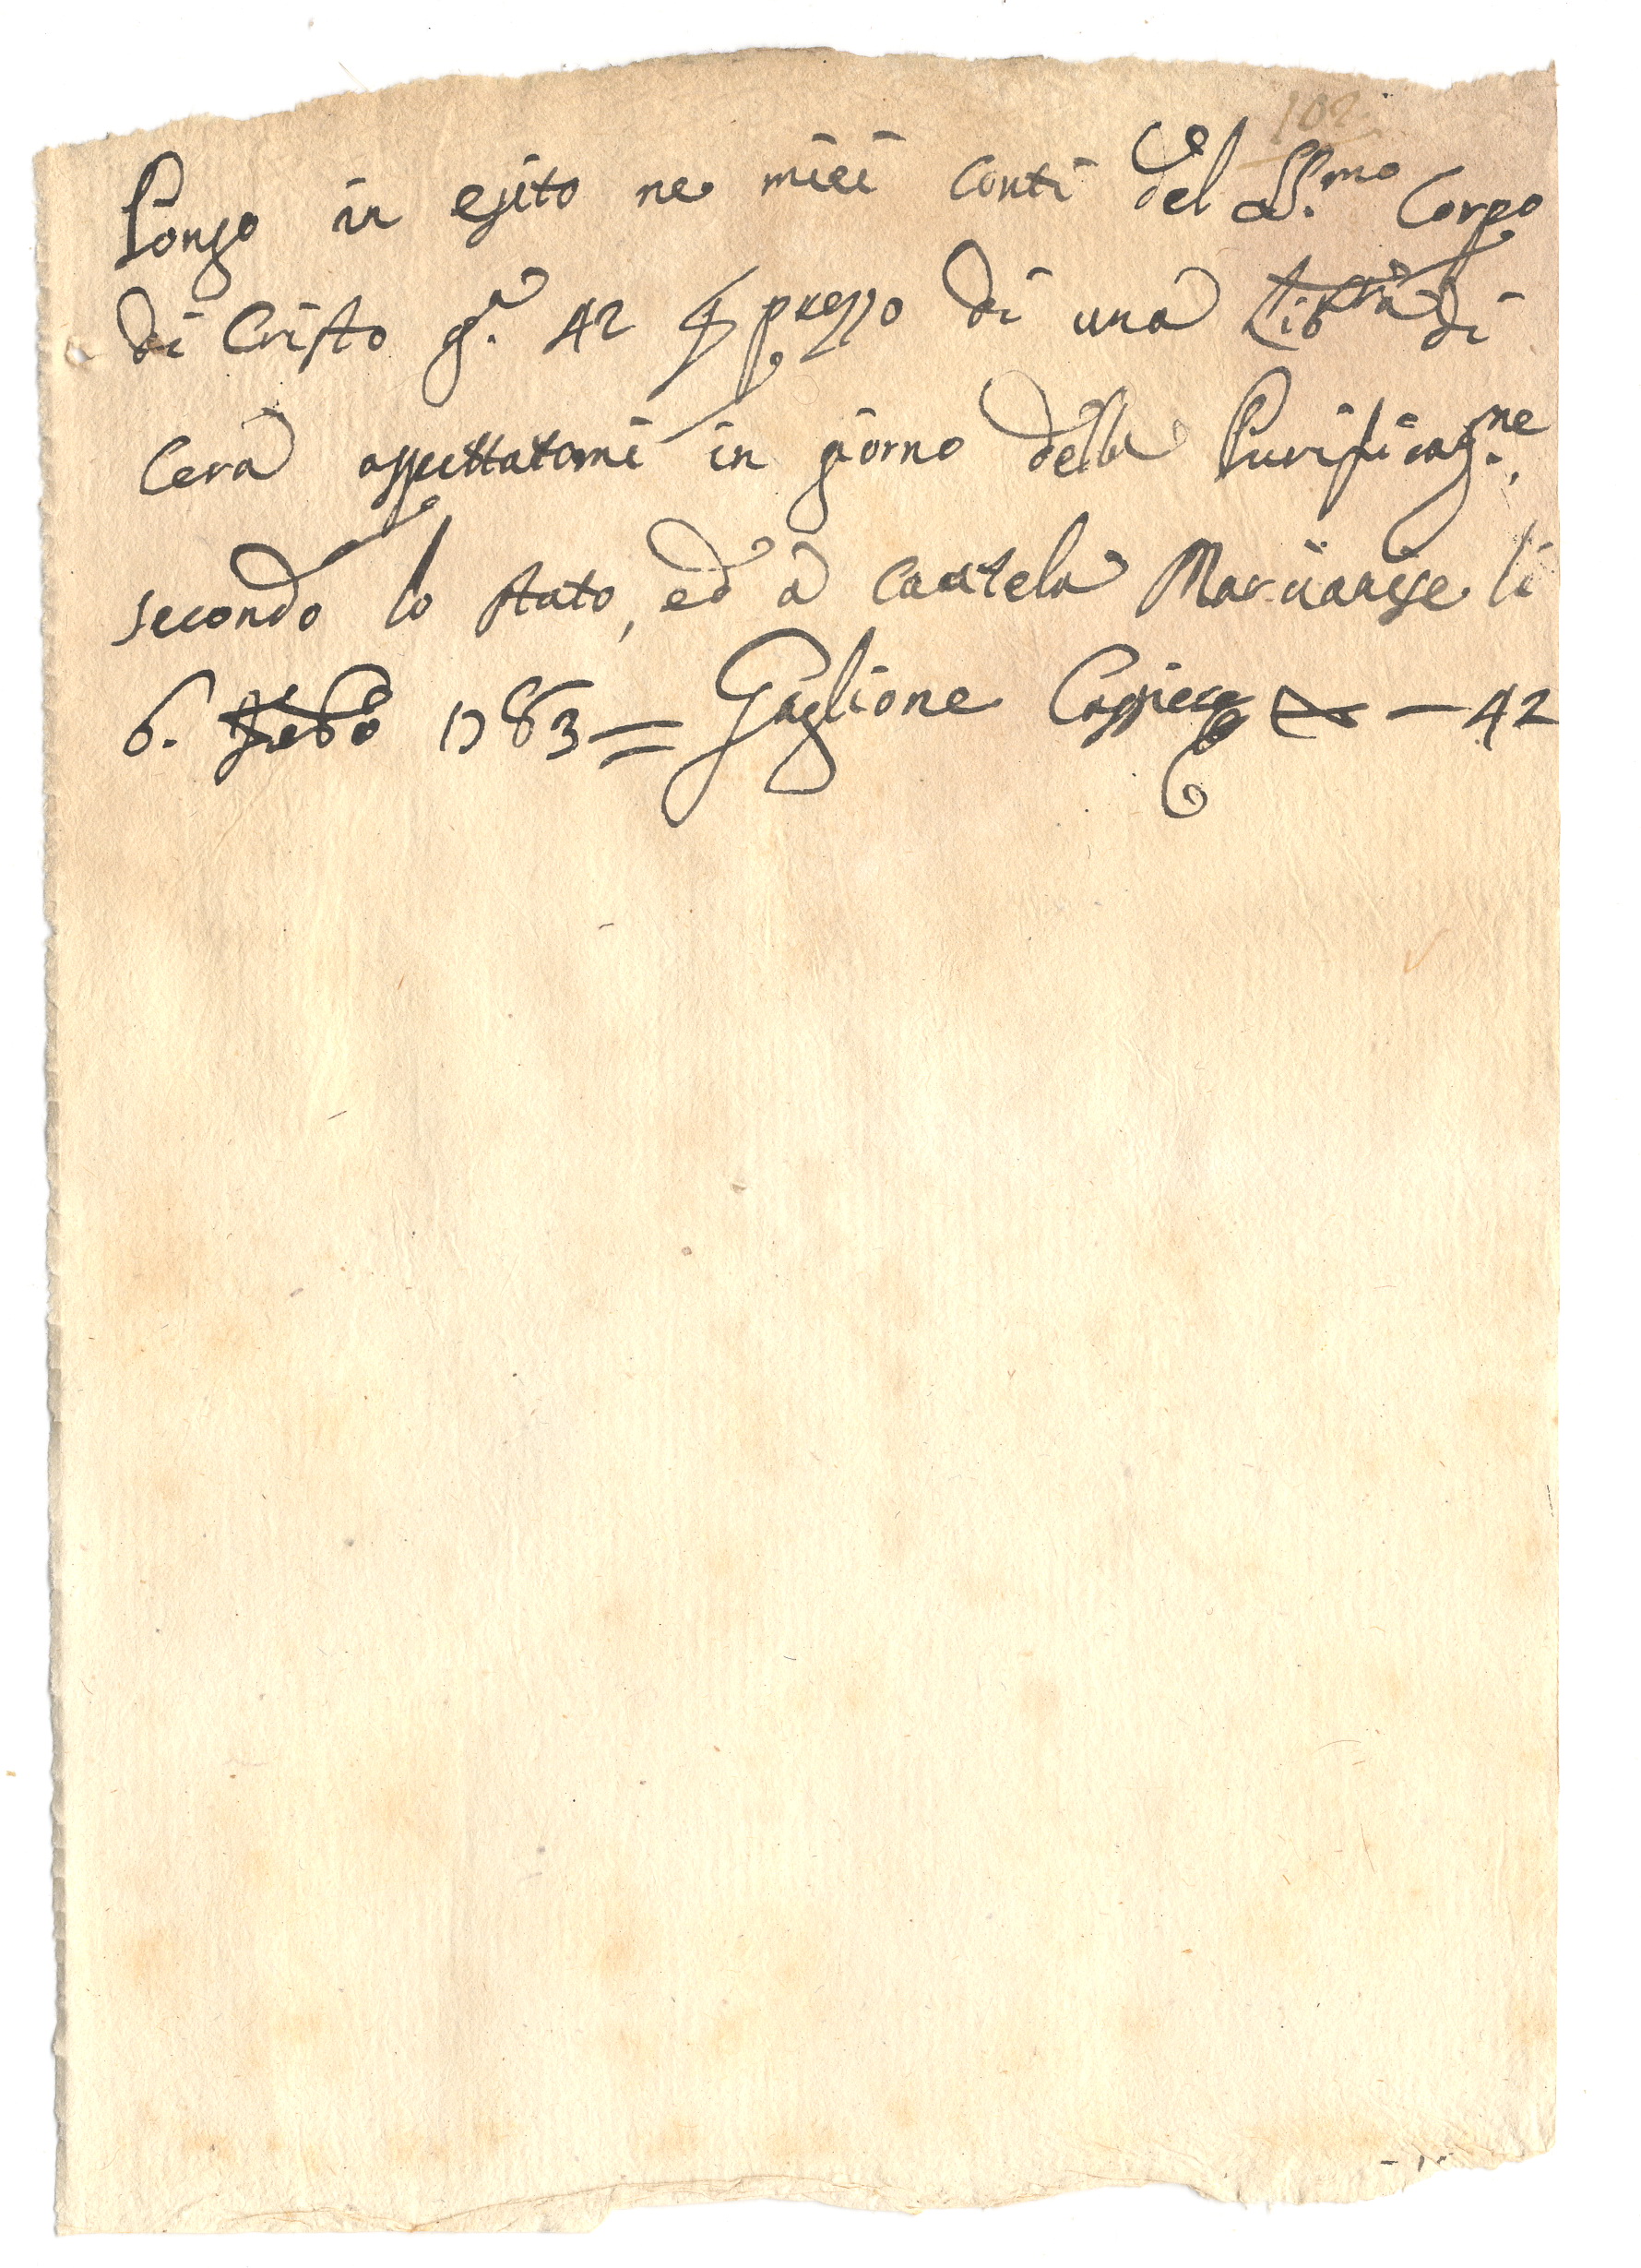 102
Pongo in esito ne miei conti del SS.mo Corpo
di Cristo g.a 42 per prezzo di una Libra di
Cera aspettatami in giorno della Purificaz.ne,
secondo lo stato, ed a cautela Marcianise li
6. Feb.o 1783 = Gaglione Cassiere — 42